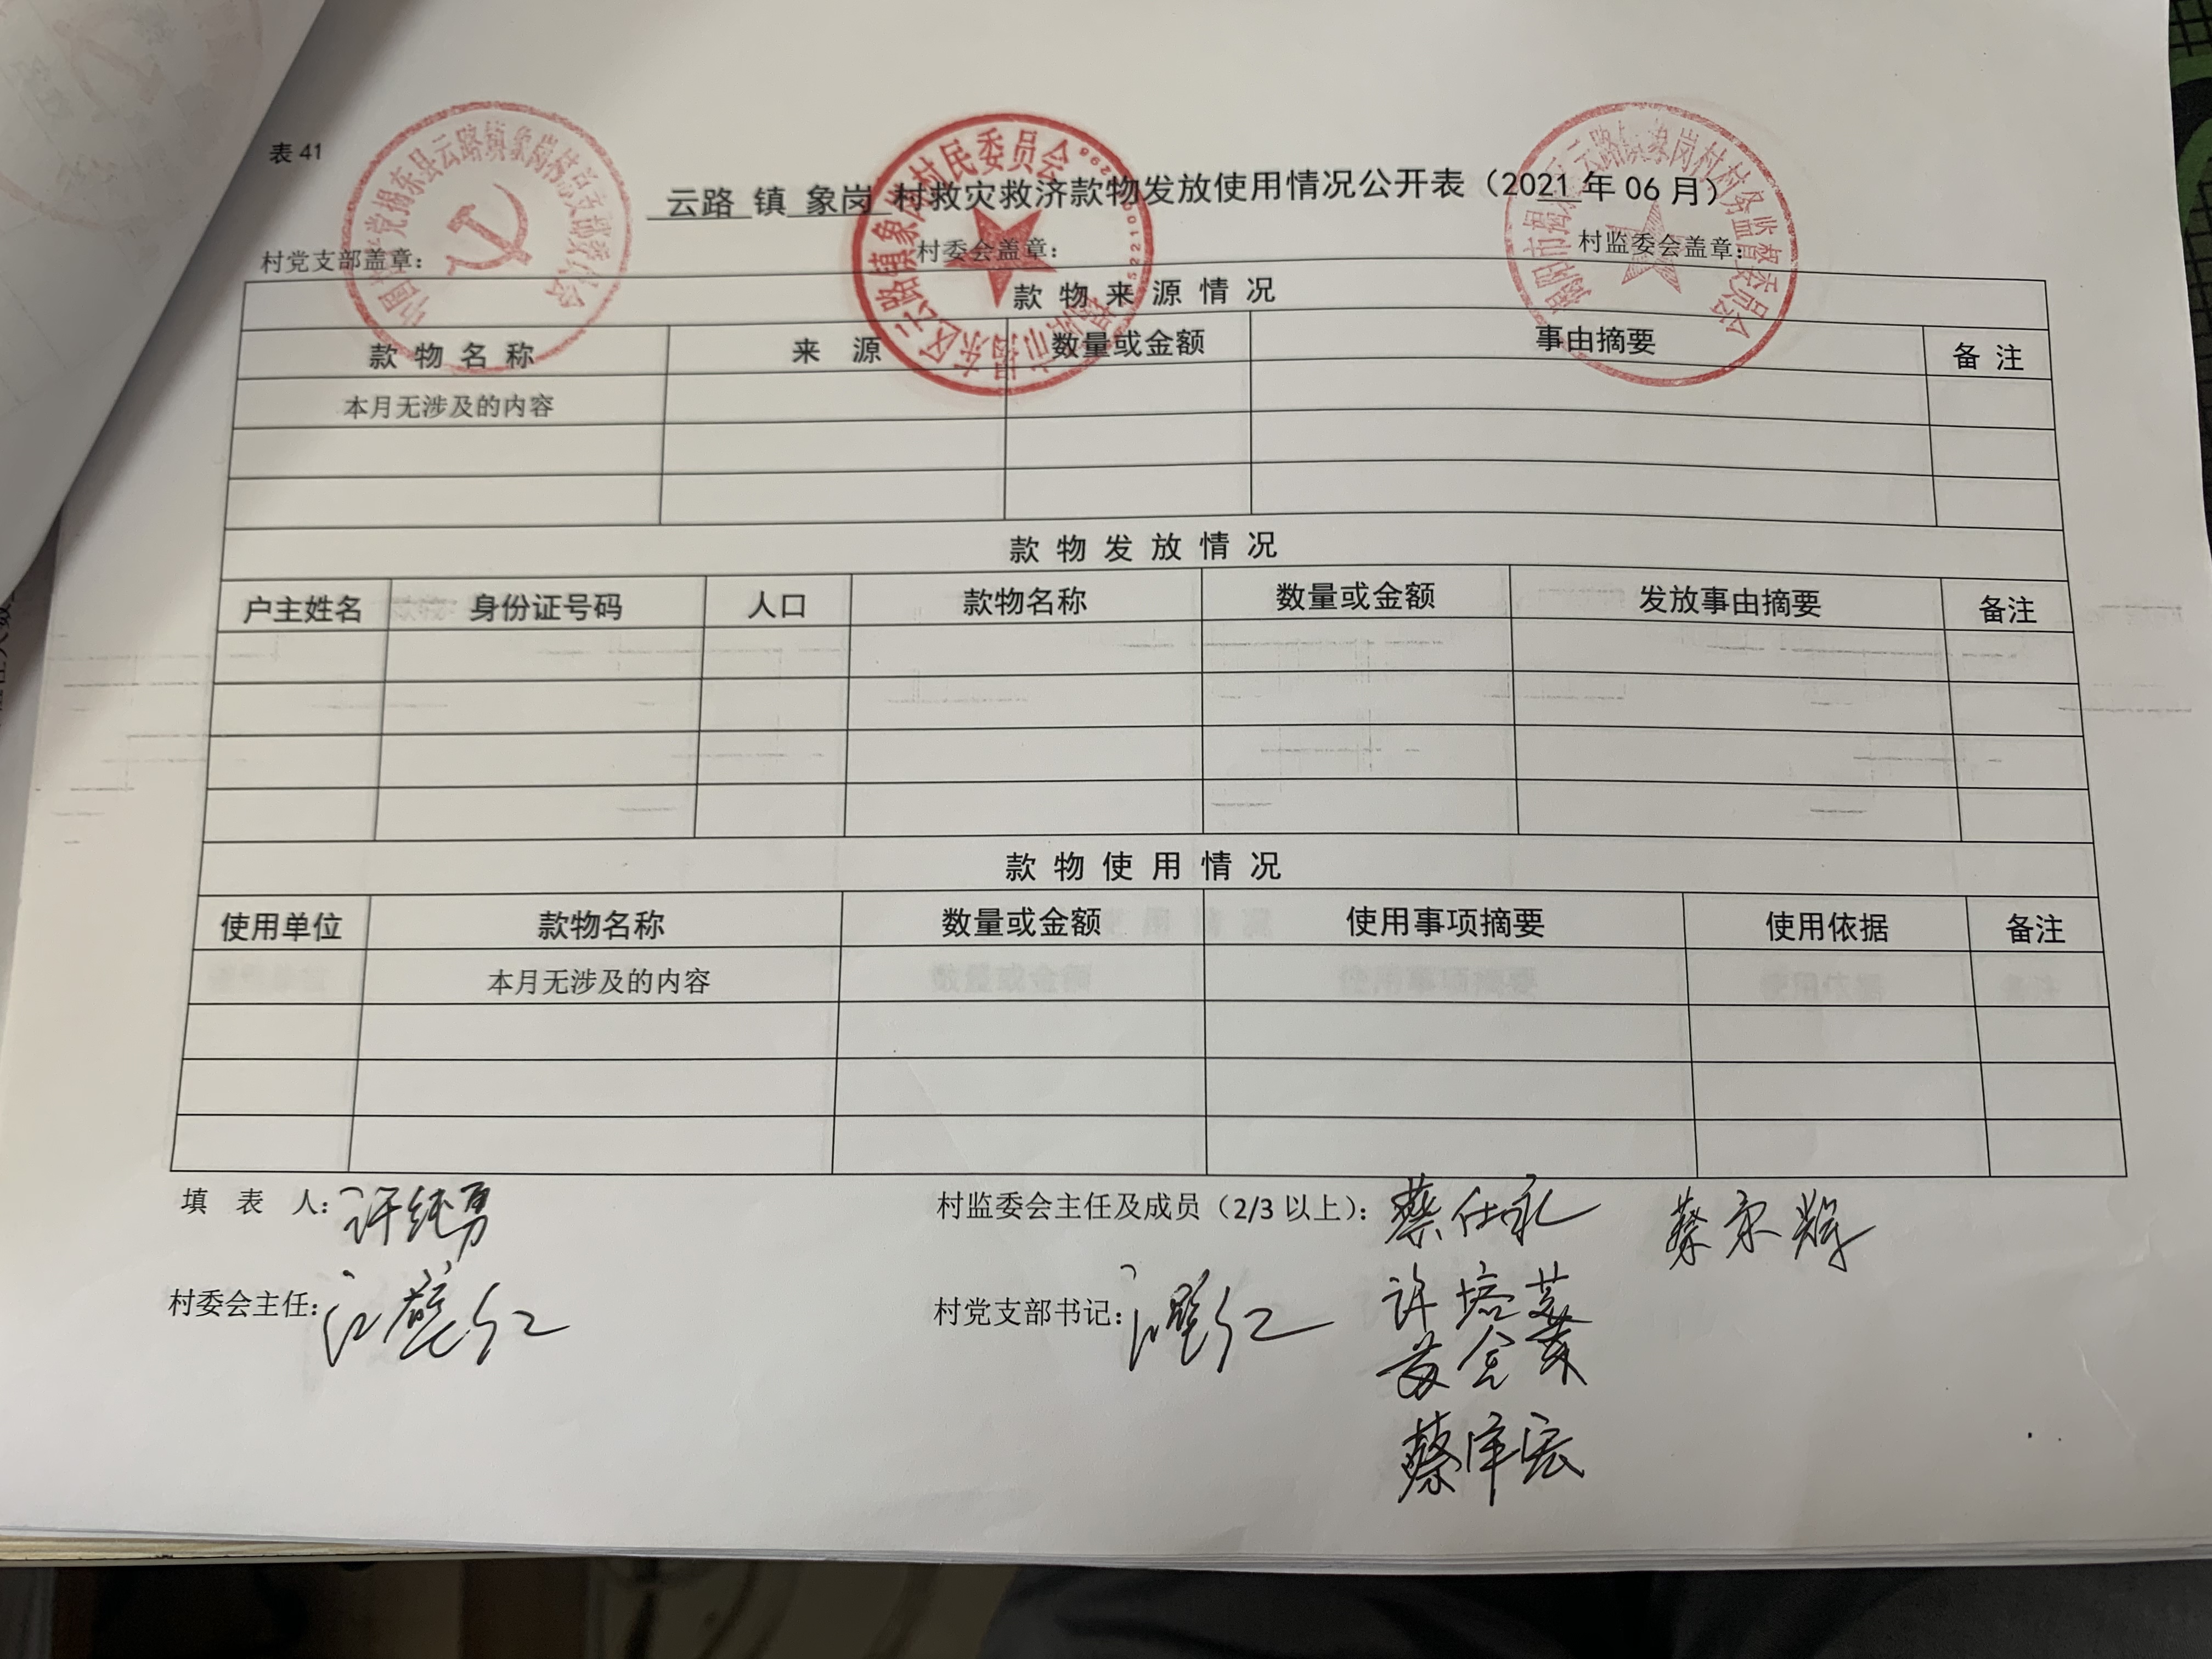 表 41
云路 镇 象岗 村救灾救济款物发放使用情况公开表（2021 年 06 月）
村党支部盖章： 村委会盖章： 村监委会盖章：
款 物 来 源 情 况
款 物 名 称 来 源 数量或金额 事由摘要 备 注
本月无涉及的内容
款 物 发 放 情 况
户主姓名 身份证号码 人口 款物名称 数量或金额 发放事由摘要 备注
款 物 使 用 情 况
使用单位 款物名称 数量或金额 使用事项摘要 使用依据 备注
本月无涉及的内容
填 表 人：许纯勇 村监委会主任及成员（2/3 以上）：蔡仕礼
村委会主任： 村党支部书记：